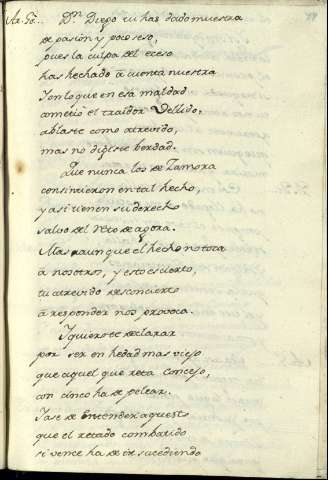 Ar. Go. Dn. Diego tu has dado muestra
de pasión y poco seso,
pues la culpa del eceso
has hechado á cuenta nuestra
Y con lo que en esa maldad
cometió el traidor Vellido,
ablaste como atrevido,
mas no dijiste berdad.
Que nunca los de Zamora
consintieron en tal hecho,
y asi tienen su derecho
salvo del reto de agora.
Mas aunque el hecho no toca
á nosotros, y esto es cierto,
tu atrevido desconcierto
á responder nos provoca.
Y quierote declarar
por ser en hedad mas viejo
que aquel que reta concejo,
con cinco ha de pelear.
Y ase de entender aquesto
que el retado combatido
si vence ha de ir sucediendo